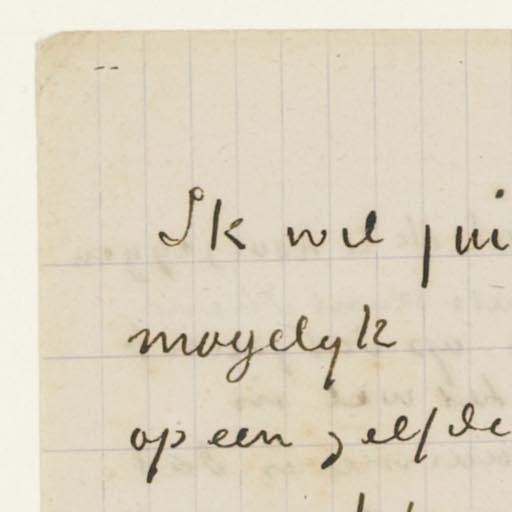 Ik wil
mogelyk
op een zelfde